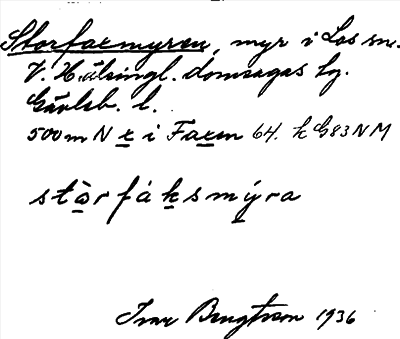 Storfaxmyren, myr i Los sn.
V. Hälsingl. domsagas tg.
Gävleb. l.
500 m N x i Faxen 64. k G83NM
stòrfàksmýra
Ivar Bengtsson 1936